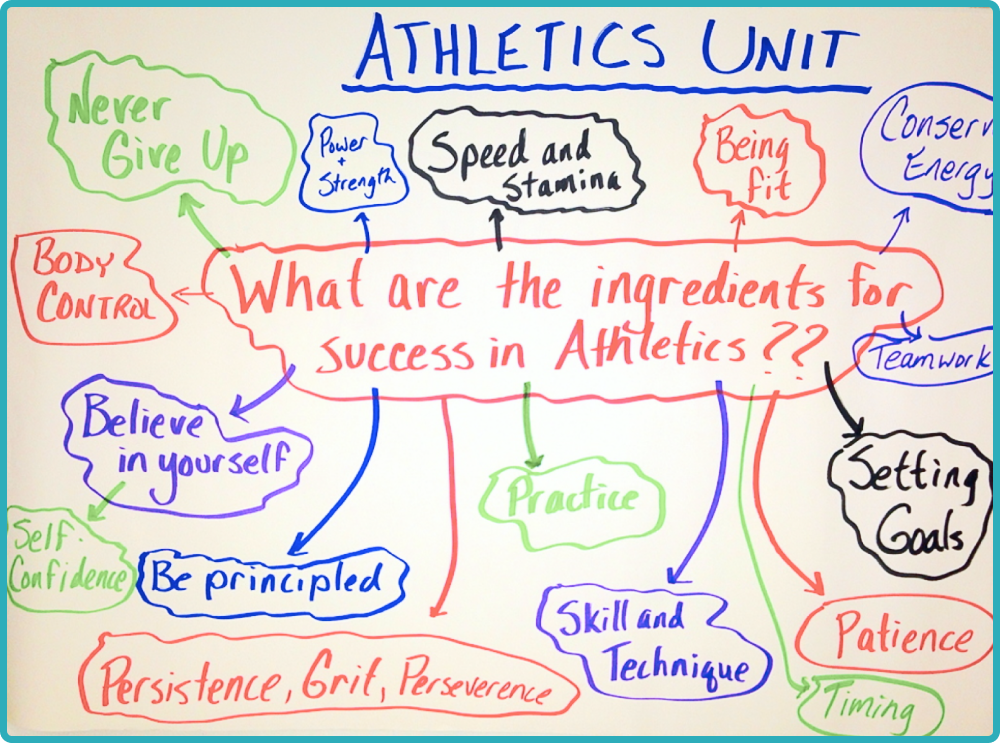 ATHLETICS UNIT
Never
Give Up
Power
+
Strength
Speed and
Stamina
Being
fit
Conserv
Energy
BODY
CONTROL
What are the ingredients for
success in Athletics??
Teamwork
Believe
in yourself
Self-
Confidence
Be principled
Practice
Setting
Goals
Skill and
Technique
Persistence, Grit, Perseverence
Patience
Timing